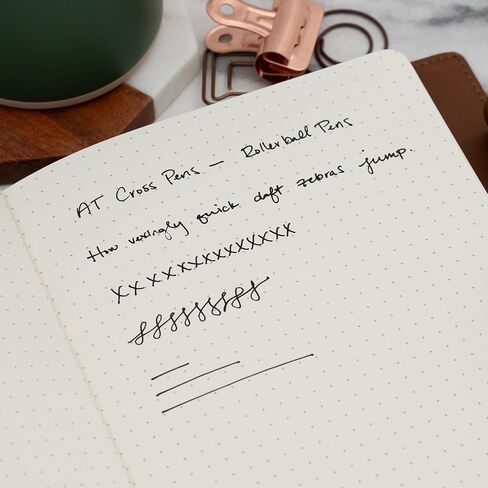 AT Cross Pens — Rollerball Pens
How vexingly quick daft zebras jump.
XXXXXXXXXXXXXX
ffffffffff